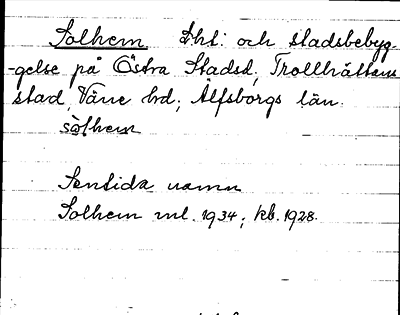 Solhem Lht. och stadsbebyg-
-gelse på Östra Stadsd., Trollhättans
stad, Väne hd; Älfsborgs län.
sòlhem
Sentida namn
Solhem ml. 1934; kb. 1928.